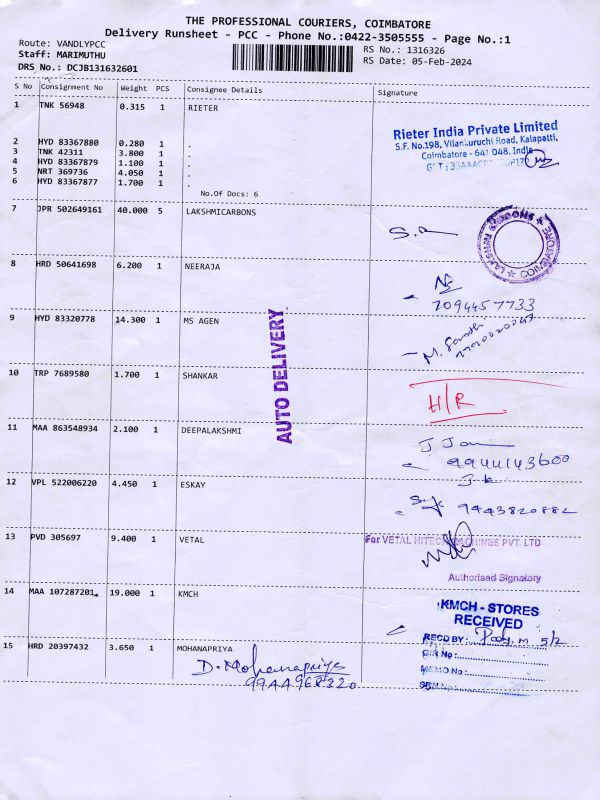 THE PROFESSIONAL COURIERS, COIMBATORE
Delivery Runsheet - PCC - Phone No.:0422-3505555 - Page No.:1
Route: VANDLYPCC
Staff: MARIMUTHU
DRS No.: DCJB131632601
RS No.: 1316326
RS Date: 05-Feb-2024
S No Consignment No Weight PCS Consignee Details Signature
1 TNK 56948 0.315 1 RIETER
2 HYD 83367880 0.280 1 .
3 TNK 42311 3.800 1 .
4 HYD 83367879 1.100 1 .
5 NRT 369736 4.050 1 .
6 HYD 83367877 1.700 1 .
No.Of Docs: 6
Rieter India Private Limited
S.F. No.198, Vilankuruchi Road, Kalapatti,
Coimbatore - 641 048, India
7 JPR 502649161 40.000 5 LAKSHMICARBONS
COIMBATORE
8 HRD 50641698 6.200 1 NEERAJA
7094457733
9 HYD 83320778 14.300 1 MS AGEN
AUTO DELIVERY
10 TRP 7689580 1.700 1 SHANKAR
H/R
11 MAA 863548934 2.100 1 DEEPALAKSHMI
9944143600
12 VPL 522006220 4.450 1 ESKAY
9443820882
13 PVD 305697 9.400 1 VETAL
For VETAL HITECH MACHINES PVT. LTD
Authorised Signatory
14 MAA 107287201 19.000 1 KMCH
KMCH - STORES
RECEIVED
RECD BY: 5/2
GIR No :
MEMO No :
SRN No :
15 HRD 20397432 3.650 1 MOHANAPRIYA
D. Mohanapriya
9944968320